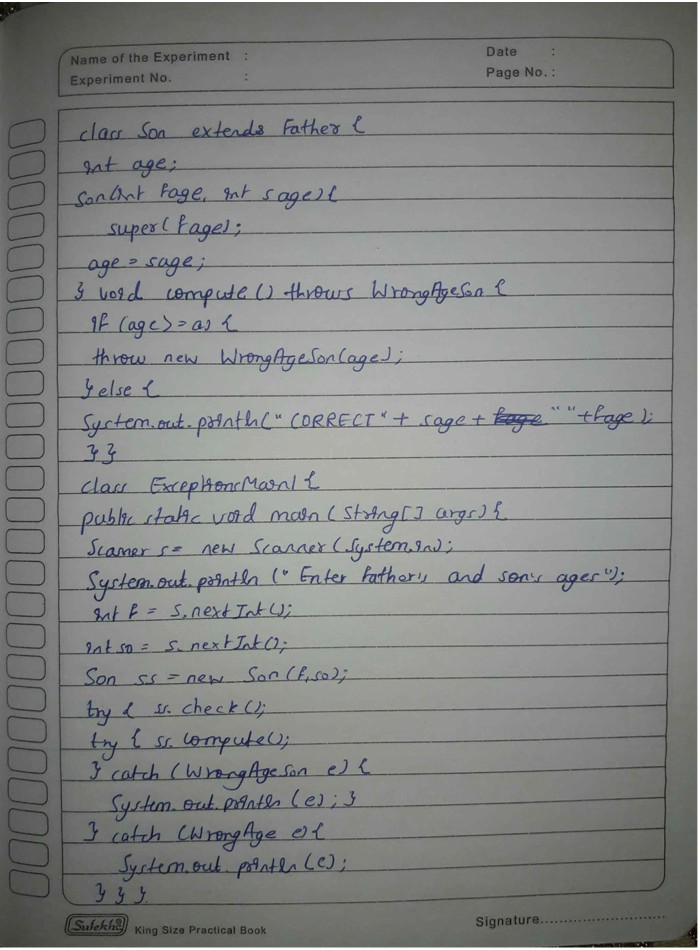 Name of the Experiment :
Date :
Experiment No. :
Page No. :
class Son extends Father {
int age;
Son(int fage, int sage){
super(fage);
age = sage;
} void compute () throws WrongAgeSon {
if (age>=a) {
throw new WrongAgeSon(age);
} else {
System.out.println(" CORRECT" + sage + fage " "+fage );
} }
class ExceptionsMain1 {
public static void main (String[] args) {
Scanner s= new Scanner (System.in);
System.out.println (" Enter father's and son's ages");
int f = s.nextInt();
int so = s.nextInt();
Son ss = new Son (f,so);
try { ss. check ();
try { ss. compute();
} catch (WrongAgeSon e) {
System.out.println (e); }
} catch (WrongAge e){
System.out. println (e);
} } }
Sulekha King Size Practical Book
Signature..............................